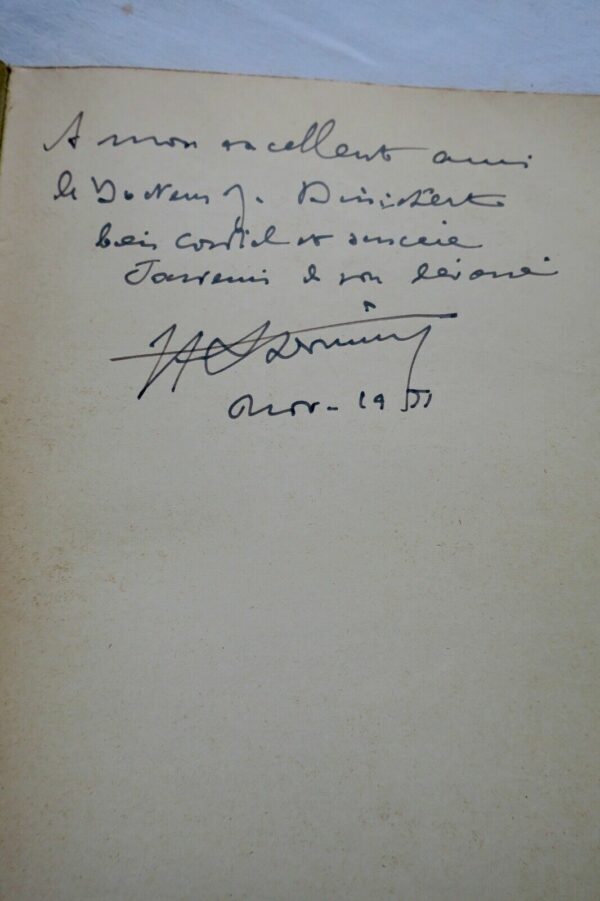 A mon excellent ami
le Docteur J.
bien cordial et sincère
Souvenir de son dévoué
Nov - 1951